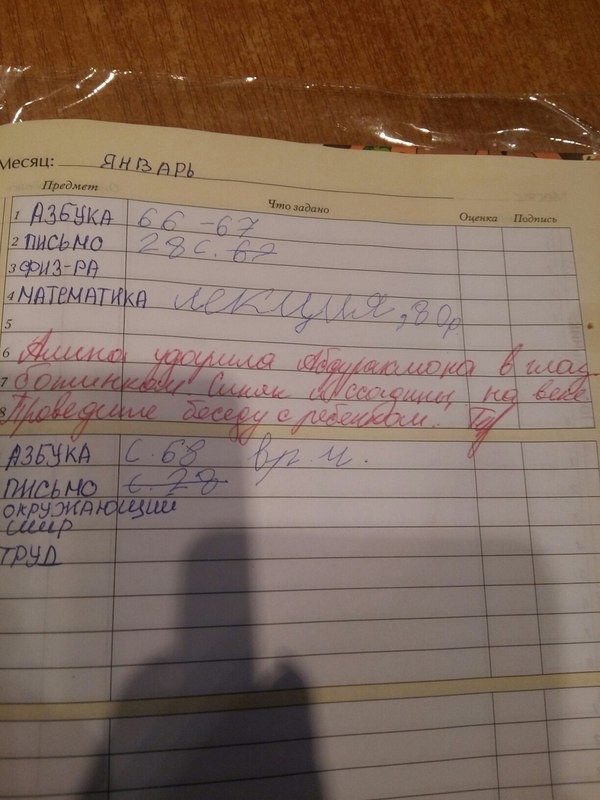 Месяц: ЯНВАРЬ
Предмет Что задано Оценка Подпись
1 АЗБУКА 66-67
2 ПИСЬМО 28 с. 67
3 ФИЗ-РА
4 МАТЕМАТИКА лекция, 80р
5
6 Амина ударила Абдурахмона в глаз
7 ботинком. Синяк и ссадины на веке.
8 Проведите беседу с ребенком.
АЗБУКА с. 68 вр. и.
ПИСЬМО с. 28
ОКРУЖАЮЩИЙ
МИР
ТРУД